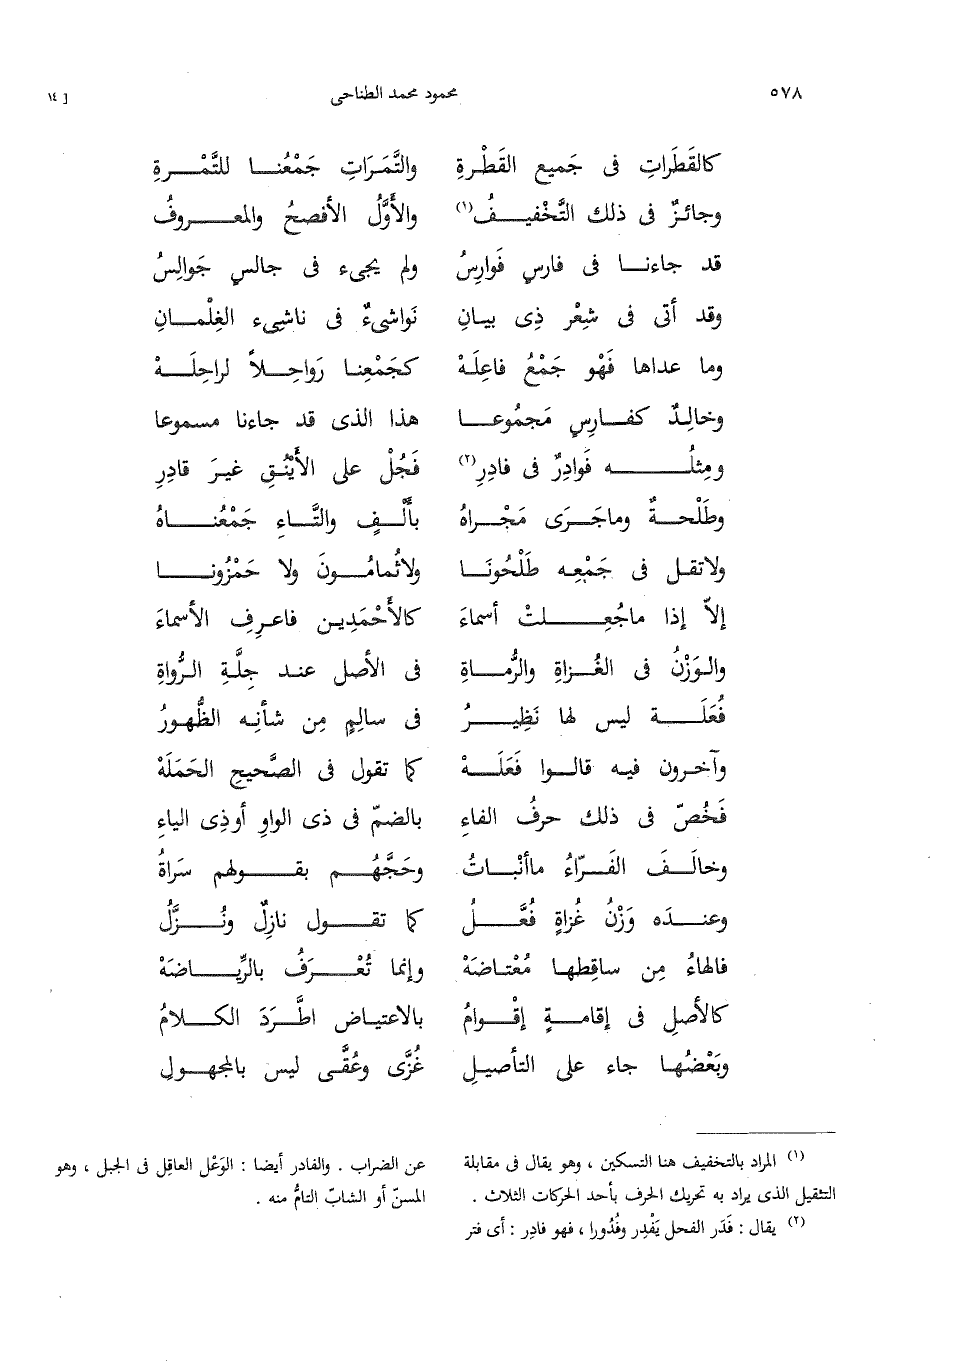 ٥٧٨ محمود محمد الطناحى [ ١٤
كالقَطَراتِ فى جَميع القَطْرةِ والتَّمَرَاتِ جَمْعُنا للتَّمْرةِ
وجائزٌ فى ذلك التَّخْفيفُ(١) والأَوَّلُ الأفصحُ والمعروفُ
قد جاءنا فى فارسٍ فَوارِسُ ولم يجىء فى جالسٍ جَوالِسُ
وقد أتى فى شِعْر ذِى بيانِ نَواشىءٌ فى ناشِىء الغِلْمانِ
وما عداها فَهْو جَمْعُ فاعِلَهْ كجَمْعِنا رَواحِلاً لراحِلَهْ
وخالِدٌ كفارِسٍ مَجمُوعا هذا الذى قد جاءنا مسموعا
ومِثلُه فَوادِرٌ فى فادِرِ(٢) فَجُلْ على الأَيْنُقِ غيرَ قادِرِ
وطَلْحةٌ وماجَرَى مَجْراهُ بأَلْفٍ والتَّاءِ جَمْعُناهُ
ولاتقل فى جَمْعِه طَلْحُونَا ولاثُمامُونَ ولا حَمْزُونا
إلاّ إذا ماجُعِلتْ أسماءَ كالأَحْمَدِين فاعرِفِ الأسماءَ
والوَزْنُ فى الغُزاةِ والرُّماةِ فى الأصل عند جِلَّةِ الرُّواةِ
فُعَلَة ليس لها نَظِيرُ فى سالِمٍ مِن شأنِه الظُّهورُ
وآخرون فيه قالوا فَعَلَهْ كما تقول فى الصَّحيحِ الحَمَلَهْ
فَخُصّ فى ذلك حرفُ الفاءِ بالضمّ فى ذى الواوِ أوذِى الياءِ
وخالَفَ الفَرّاءُ ماأنْباتُ وحَجَّهُم بقولهم سَراةُ
وعندَه وَزْنُ غُزاةٍ فُعَّلُ كما تقول نازِلٌ ونُزَّلُ
فالهاءُ مِن ساقِطِها مُعْتاضَهْ وإنما تُعْرَفُ بالرِّياضَهْ
كالأصلِ فى إقامةٍ إقْوامُ بالاعتياض اطَّرَدَ الكلامُ
وبَعْضُها جاء على التأصيلِ غُزَّى وعُفَّى ليس بالمجهولِ
(١) المراد بالتخفيف هنا التسكين ، وهو يقال فى مقابلة
التثقيل الذى يراد به تحريك الحرف بأحد الحركات الثلاث .
(٢) يقال : فَدَر الفحل يَفْدِر وفُدُورا ، فهو فادِر : أى فتر
عن الضراب . والفادر أيضا : الوَعْل العاقِل فى الجبل ، وهو
المسنّ أو الشابّ التامُّ منه .